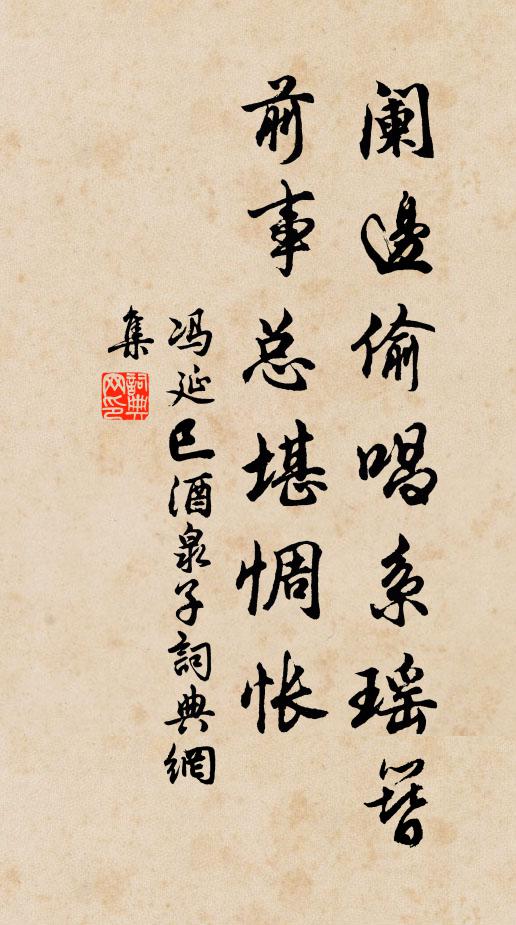 阑邊偷唱系瑶簪
前事总堪惆怅
冯延巳酒泉子詞典網
集
詞典网印